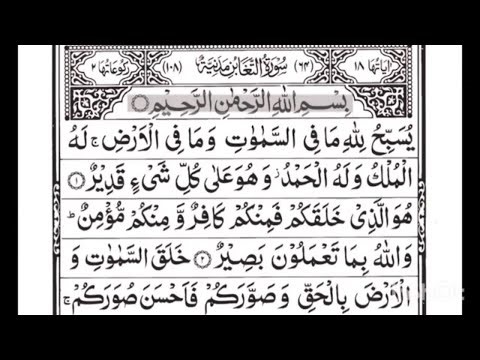 اٰيَاتُهَا ١٨ (٦٤) سُوْرَةُ التَّغَابُنِ مَدَنِيَّةٌ (١٠٨) رُكُوْعَاتُهَا ٢
بِسْمِ اللّٰهِ الرَّحْمٰنِ الرَّحِيْمِ
يُسَبِّحُ لِلّٰهِ مَا فِى السَّمٰوٰتِ وَمَا فِى الْاَرْضِ ۚ لَهُ
الْمُلْكُ وَلَهُ الْحَمْدُ ؗ وَهُوَ عَلٰى كُلِّ شَىْءٍ قَدِيْرٌ ﴿١﴾
هُوَ الَّذِىْ خَلَقَكُمْ فَمِنْكُمْ كَافِرٌ وَّ مِنْكُمْ مُّؤْمِنٌ ؕ
وَاللّٰهُ بِمَا تَعْمَلُوْنَ بَصِيْرٌ ﴿٢﴾ خَلَقَ السَّمٰوٰتِ وَ
الْاَرْضَ بِالْحَقِّ وَصَوَّرَكُمْ فَاَحْسَنَ صُوَرَكُمْ ۚ